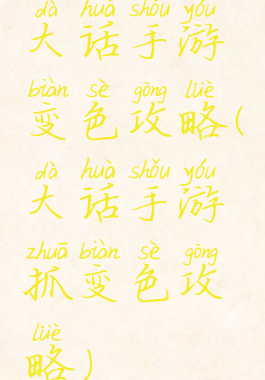 dà huà shǒu yóu
大话手游
biàn sè gōng lüè
变色攻略(
dà huà shǒu yóu
大话手游
zhuā biàn sè gōng
抓变色攻
lüè
略)